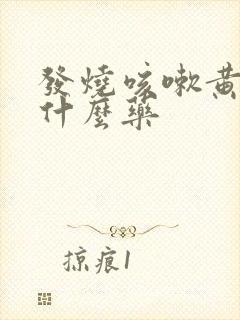 發燒咳嗽黃
什麼藥
掠痕1